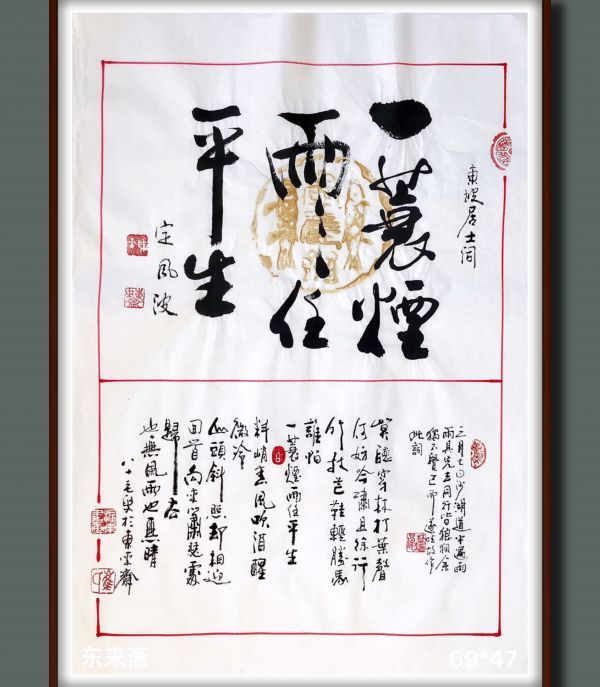 東坡居士詞
一蓑煙
雨任
平生
定風波
三月七日沙湖道中遇雨
雨具先去同行皆狼狽余
獨不覺已而遂晴故作
此詞
莫聽穿林打葉聲
何妨吟嘯且徐行
竹杖芒鞋輕勝馬
誰怕
一蓑煙雨任平生
料峭春風吹酒醒
微冷
山頭斜照却相迎
回首向來蕭瑟處
歸去
也無風雨也無晴
八十毛叟於東來齋
东来斋
69*47